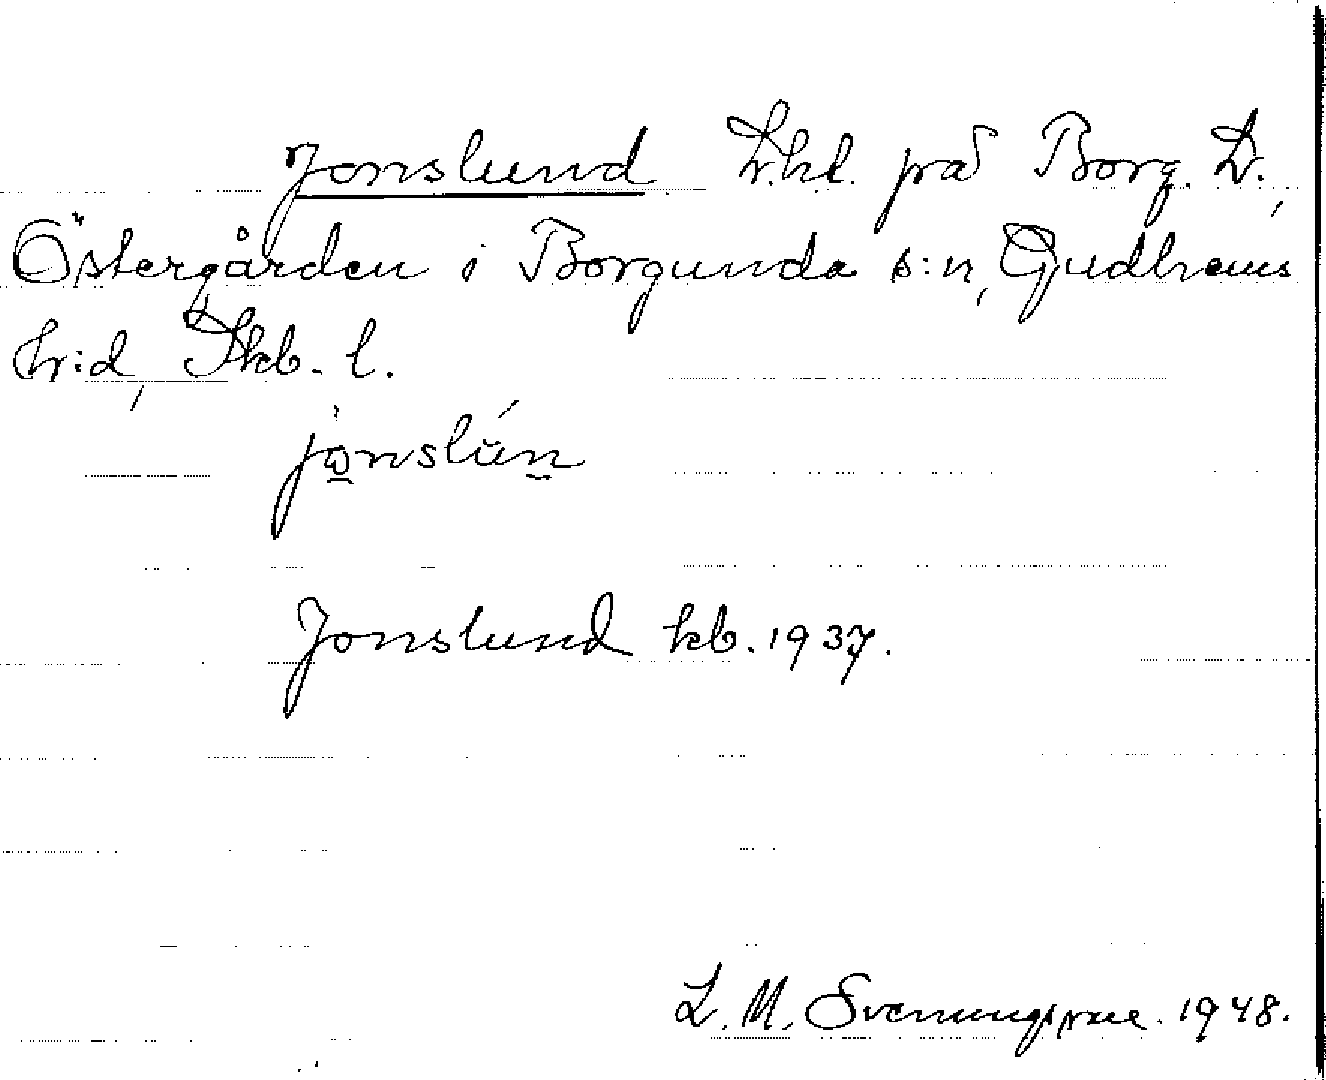 Jonslund Lhl. på Borg. L.,
Östergården i Borgunda s:n, Gudhems
hr:d, Skb. l.
jonslún
Jonslund kb. 1937.
L. M. Svenungsson. 1948.